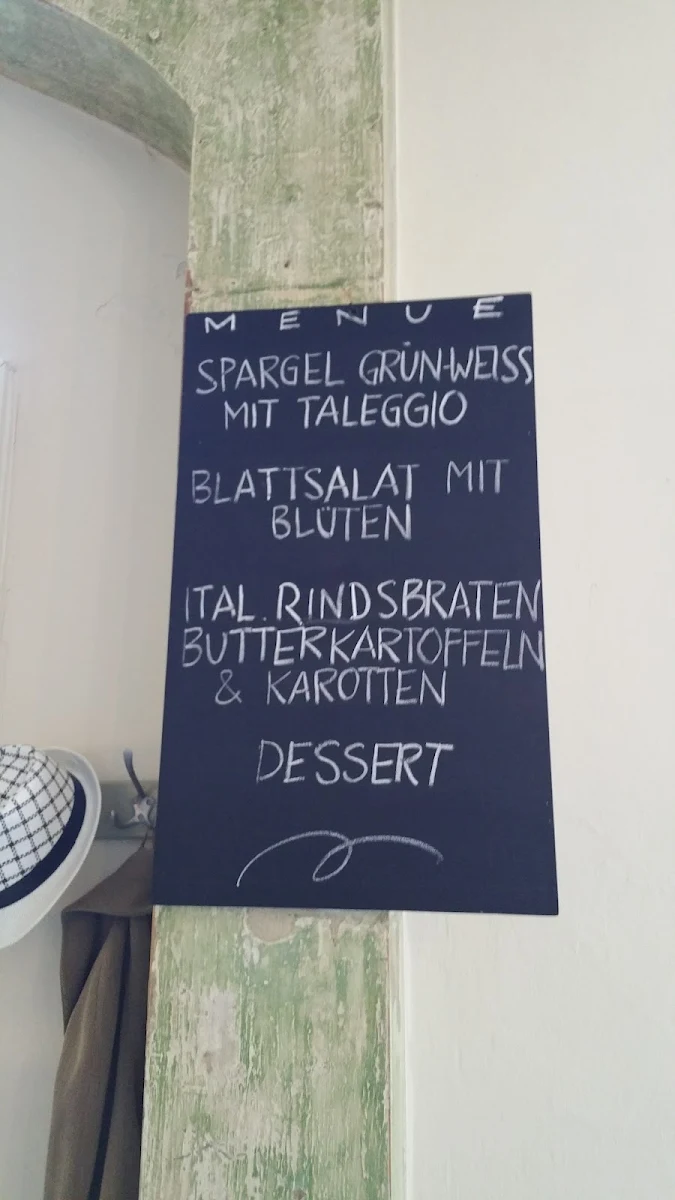 MENUE
SPARGEL GRÜN-WEISS
MIT TALEGGIO
BLATTSALAT MIT
BLÜTEN
ITAL. RINDSBRATEN
BUTTERKARTOFFELN
& KAROTTEN
DESSERT